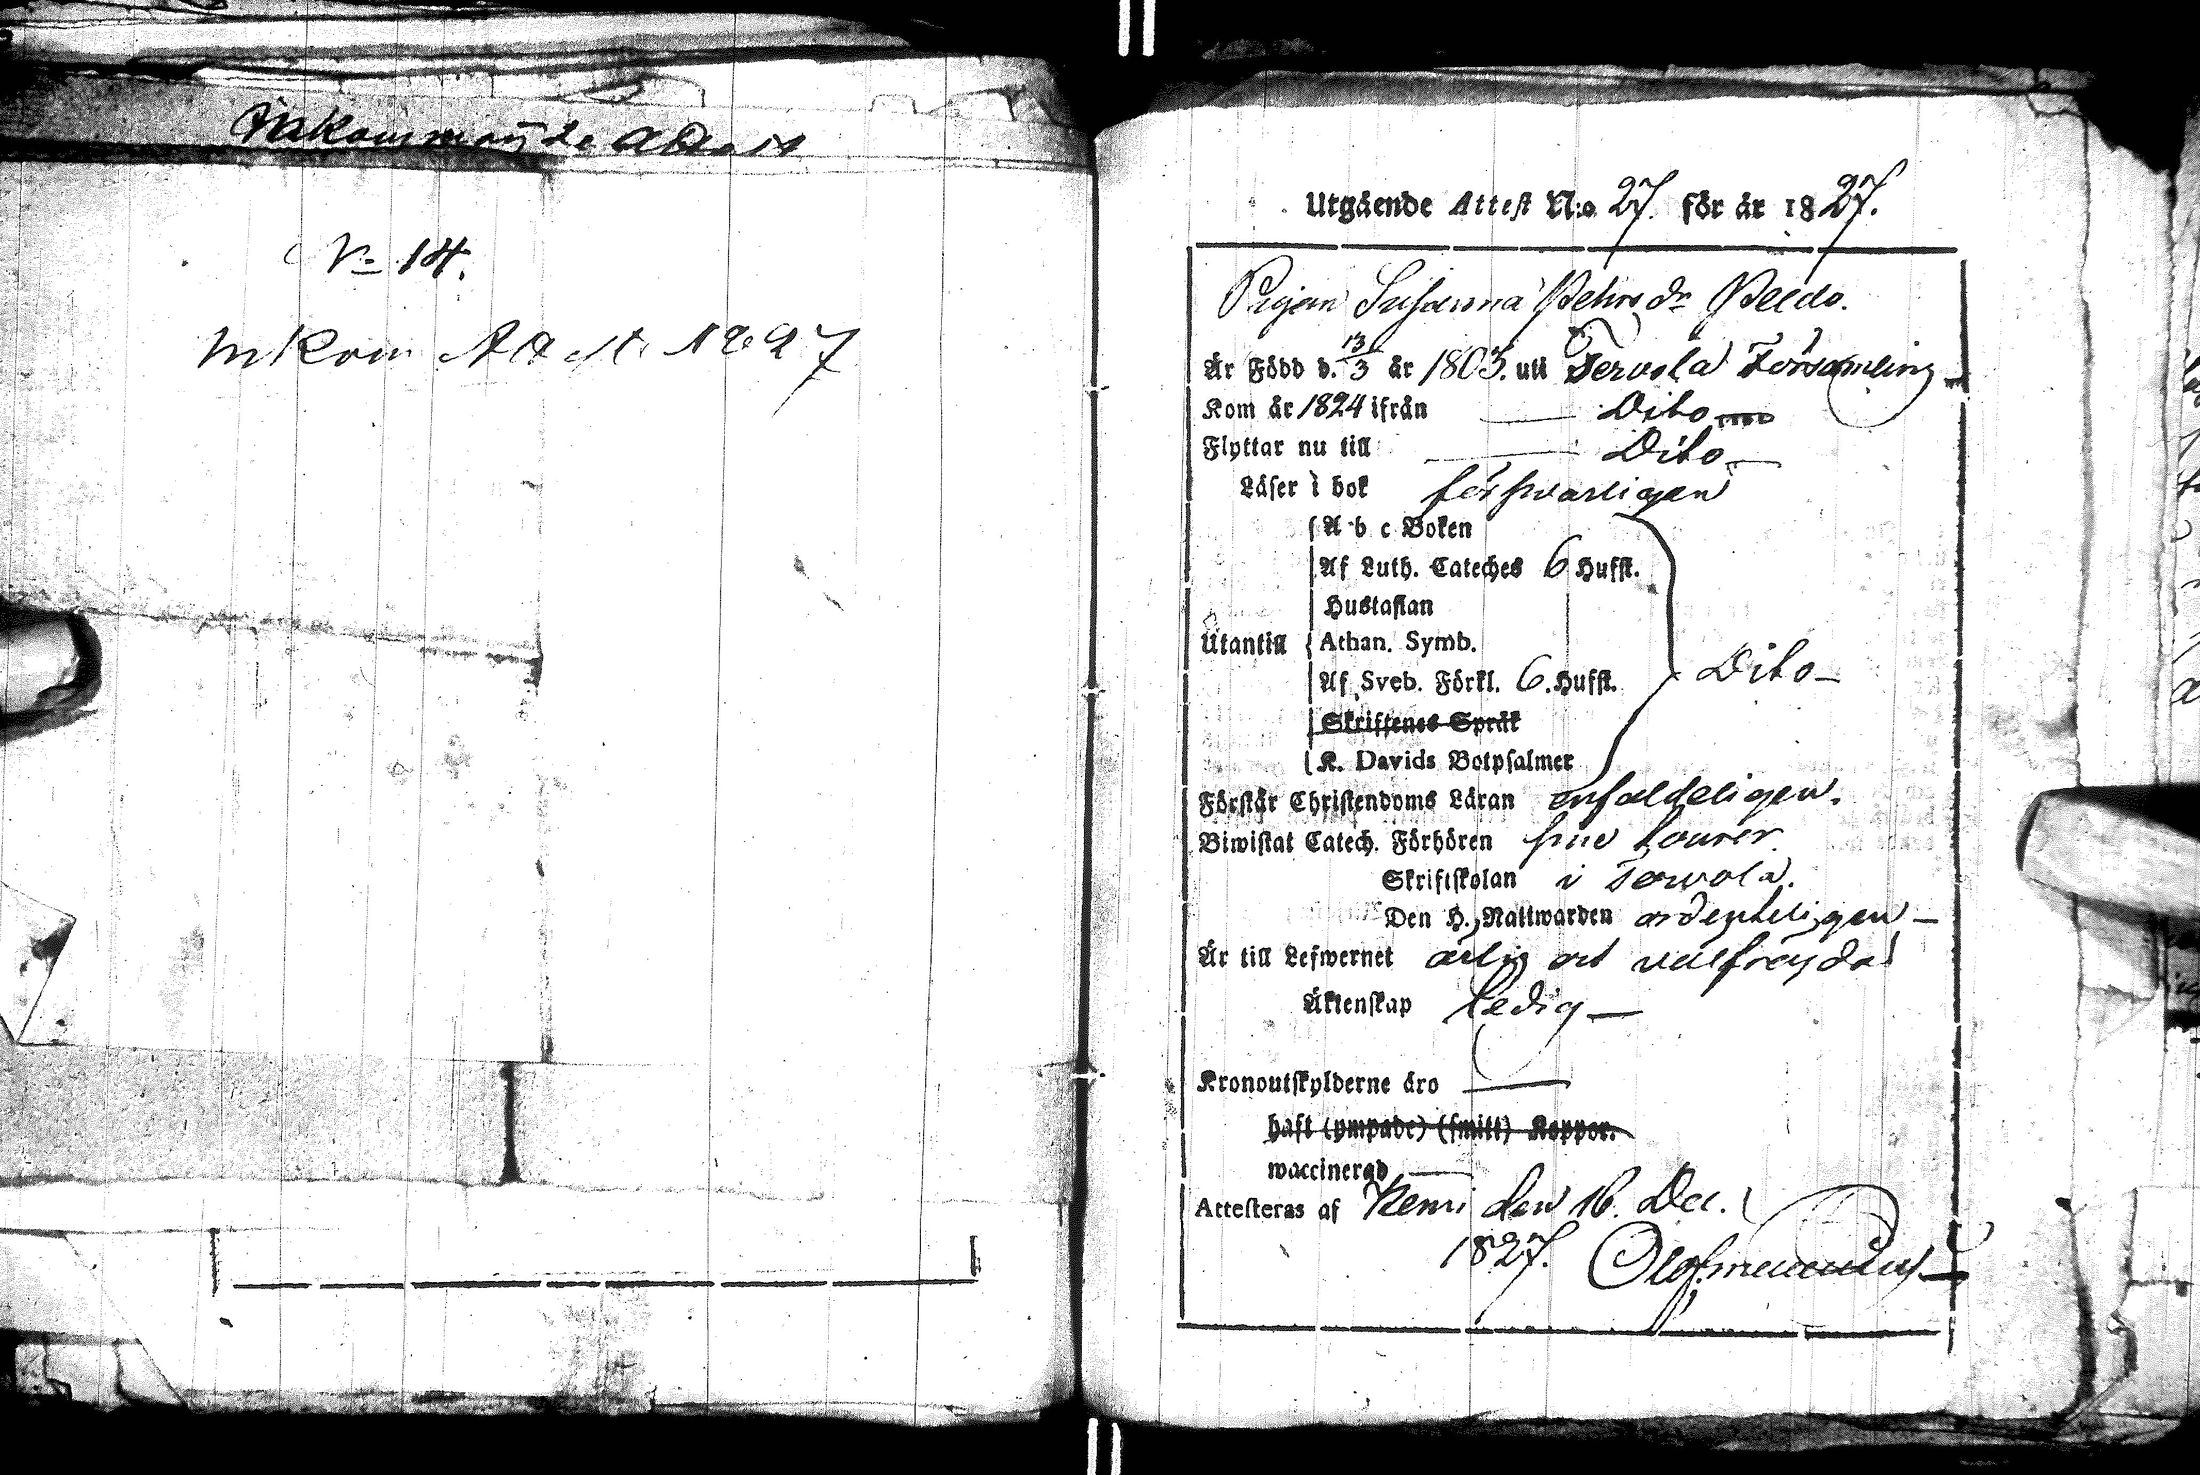 Inkommande Attest
No 14.
Inkom Attest 1827
Utgående Attest N:o 27. för år 1827.
Pigan Susanna Pehrsdr
Är Född d. 13/3 år 1803. uti Tervola Församling
Kom år 1824 ifrån — Dito —
Flyttar nu till — Dito —
Läser i bok försvarligen
A b c Boken
Af Luth. Cateches 6 Hufst.
Hustaflan
Utantill Athan. Symb.
Af Sveb. Förkl. 6. Hufst. Dito —
Skriftenes Språk
K. Davids Botpsalmer
Förstår Christendoms Läran enfaldeligen.
Biwistat Catech. Förhören sine tourer.
Skriftskolan i Tervola.
Den H. Nattwarden ordenteligen —
Är till Lefwernet ärlig och välfrejdad
Äktenskap ledig —
Kronoutskylderne äro —
haft (ympade) (smitt) Koppor.
waccinerad —
Attesteras af Kemi den 16. Dec.
1827.